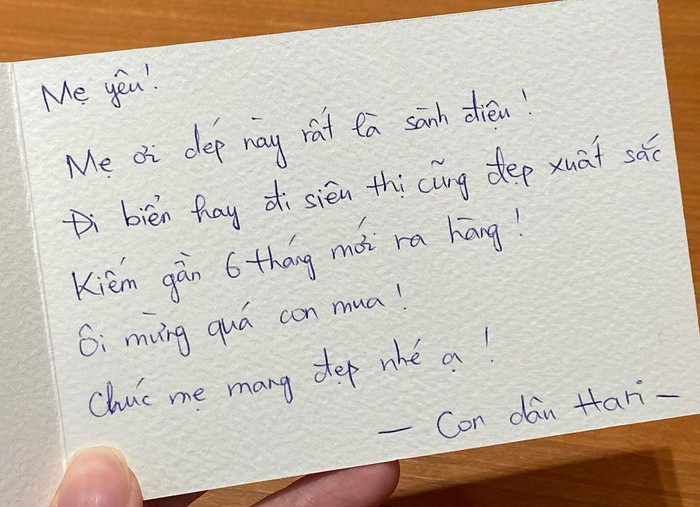 Mẹ yêu!
Mẹ ơi dép này rất là sành điệu!
Đi biển hay đi siêu thị cũng đẹp xuất sắc
Kiếm gần 6 tháng mới ra hàng!
Ôi mừng quá con mua!
Chúc mẹ mang đẹp nhé ạ!
— Con dâu Hari —